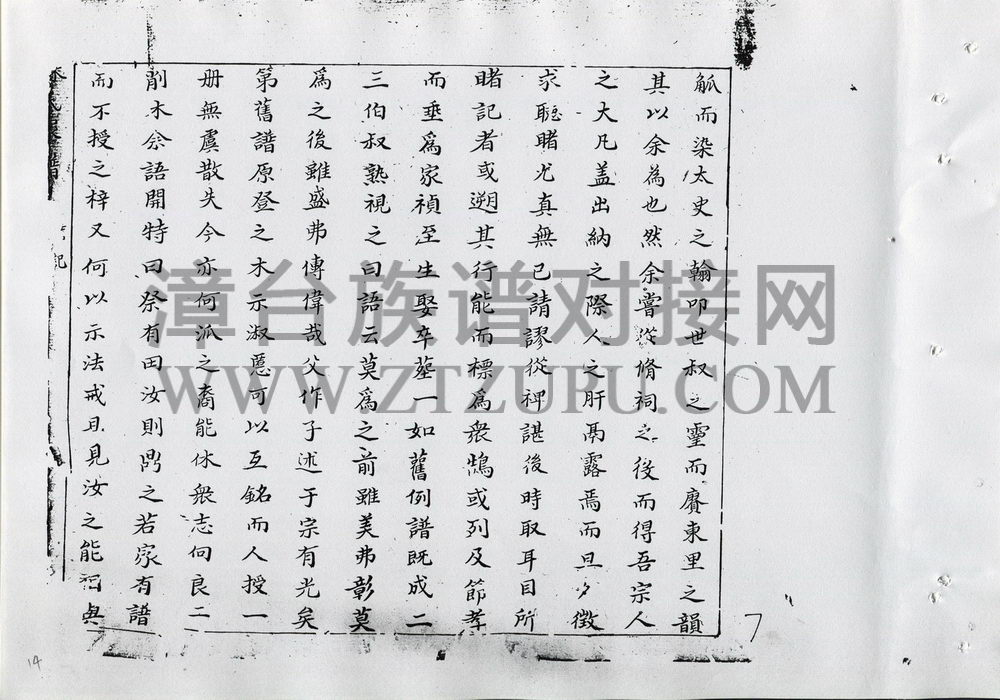 觚而染太史之翰叩世叔之靈而賡東里之韻
其以余為也然余嘗從脩祠之後而得吾宗人
之大凡盖出納之際人之肝鬲露焉而旦夕徵
求聽睹尤真無已請謬從裨諶後時取耳目所
睹記者或遡其行能而標爲衆鵠或列及節孝
而垂爲家禎至生娶卒塟一如舊例譜既成二
三伯叔熟視之曰語云莫爲之前雖美弗彰莫
爲之後雖盛弗傳偉哉父作子述于宗有光矣
第舊譜原登之木示淑慝可以互銘而人授一
册無虞散失今亦何泒之裔能休衆志向良二
削木余語開特曰祭有田汝則鼎之若家有譜
而不授之梓又何以示法戒且見汝之能祠與
記
7
14
漳台族谱对接网
WWW.ZTZUPU.COM